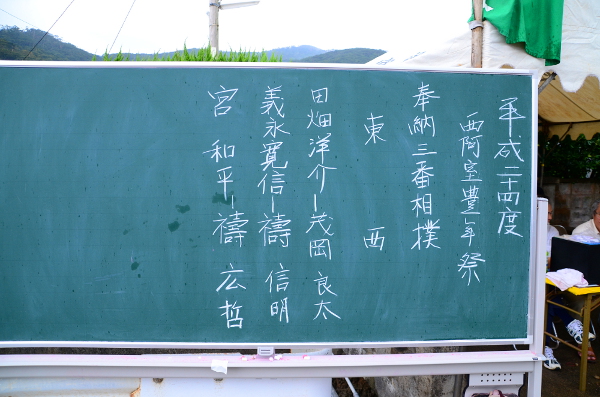 平成二十四度
西阿室豊年祭
奉納三番相撲
東 西
田畑洋介ー茂岡良太
義永寛信ー禱 信明
宮 和平ー禱 広哲